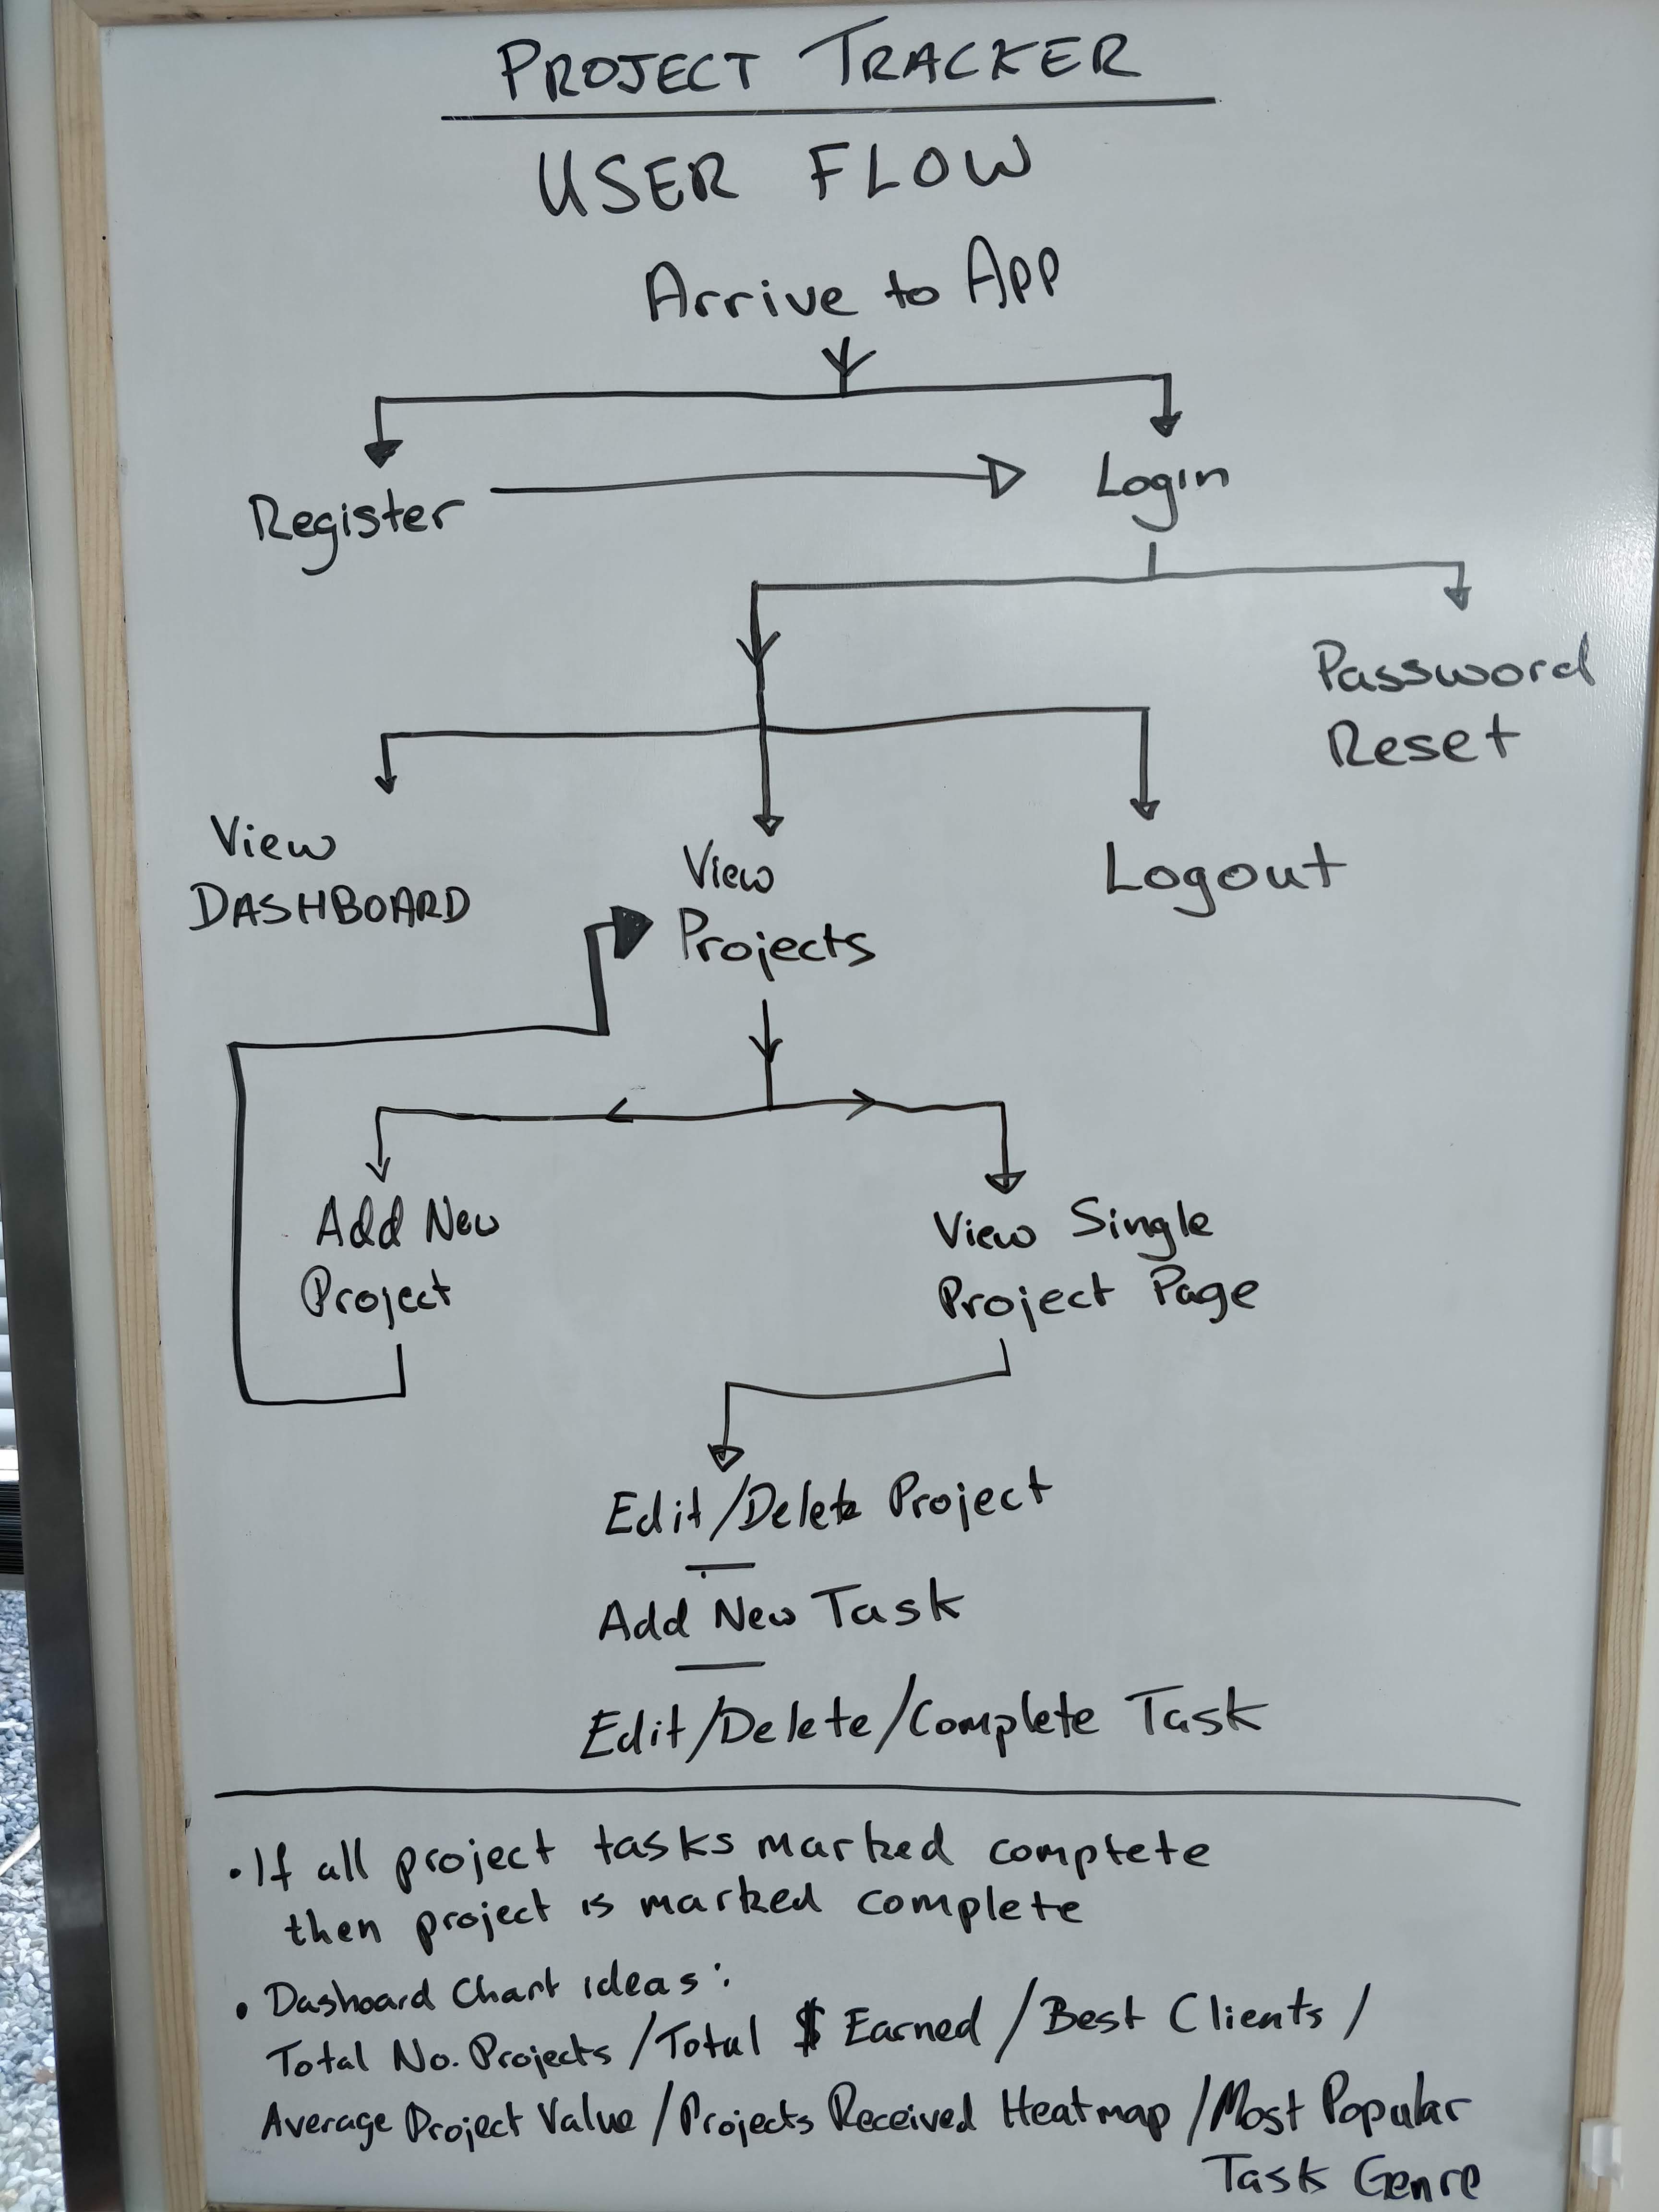 PROJECT TRACKER
USER FLOW
Arrive to App
Register
Login
Password
Reset
View
DASHBOARD
View
Projects
Logout
Add New
Project
View Single
Project Page
Edit/Delete Project
Add New Task
Edit/Delete/Complete Task
• If all project tasks marked complete
then project is marked complete
• Dashoard Chart ideas:
Total No. Projects / Total $ Earned / Best Clients /
Average Project Value / Projects Received Heatmap / Most Popular
Task Genre